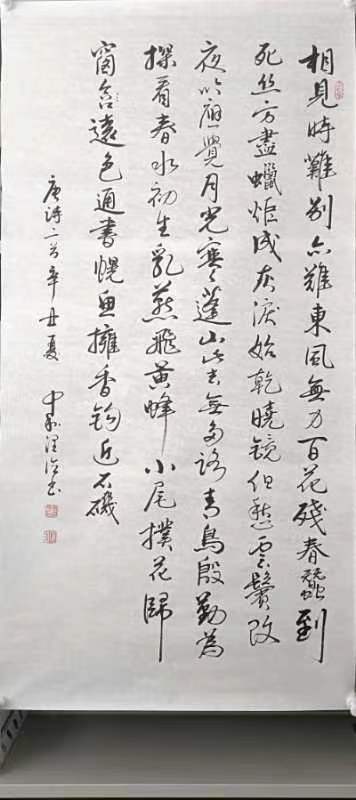 相見時難别亦難東風無力百花殘春蠶到
死丝方盡蠟炬成灰淚始乾曉镜但愁雲鬢改
夜吟應覺月光寒蓬山此去無多路青鳥殷勤為
探看春水初生乳燕飛黄蜂小尾撲花歸
窗含遠色通書幌魚擁香鈎近石磯
唐诗二首辛丑夏